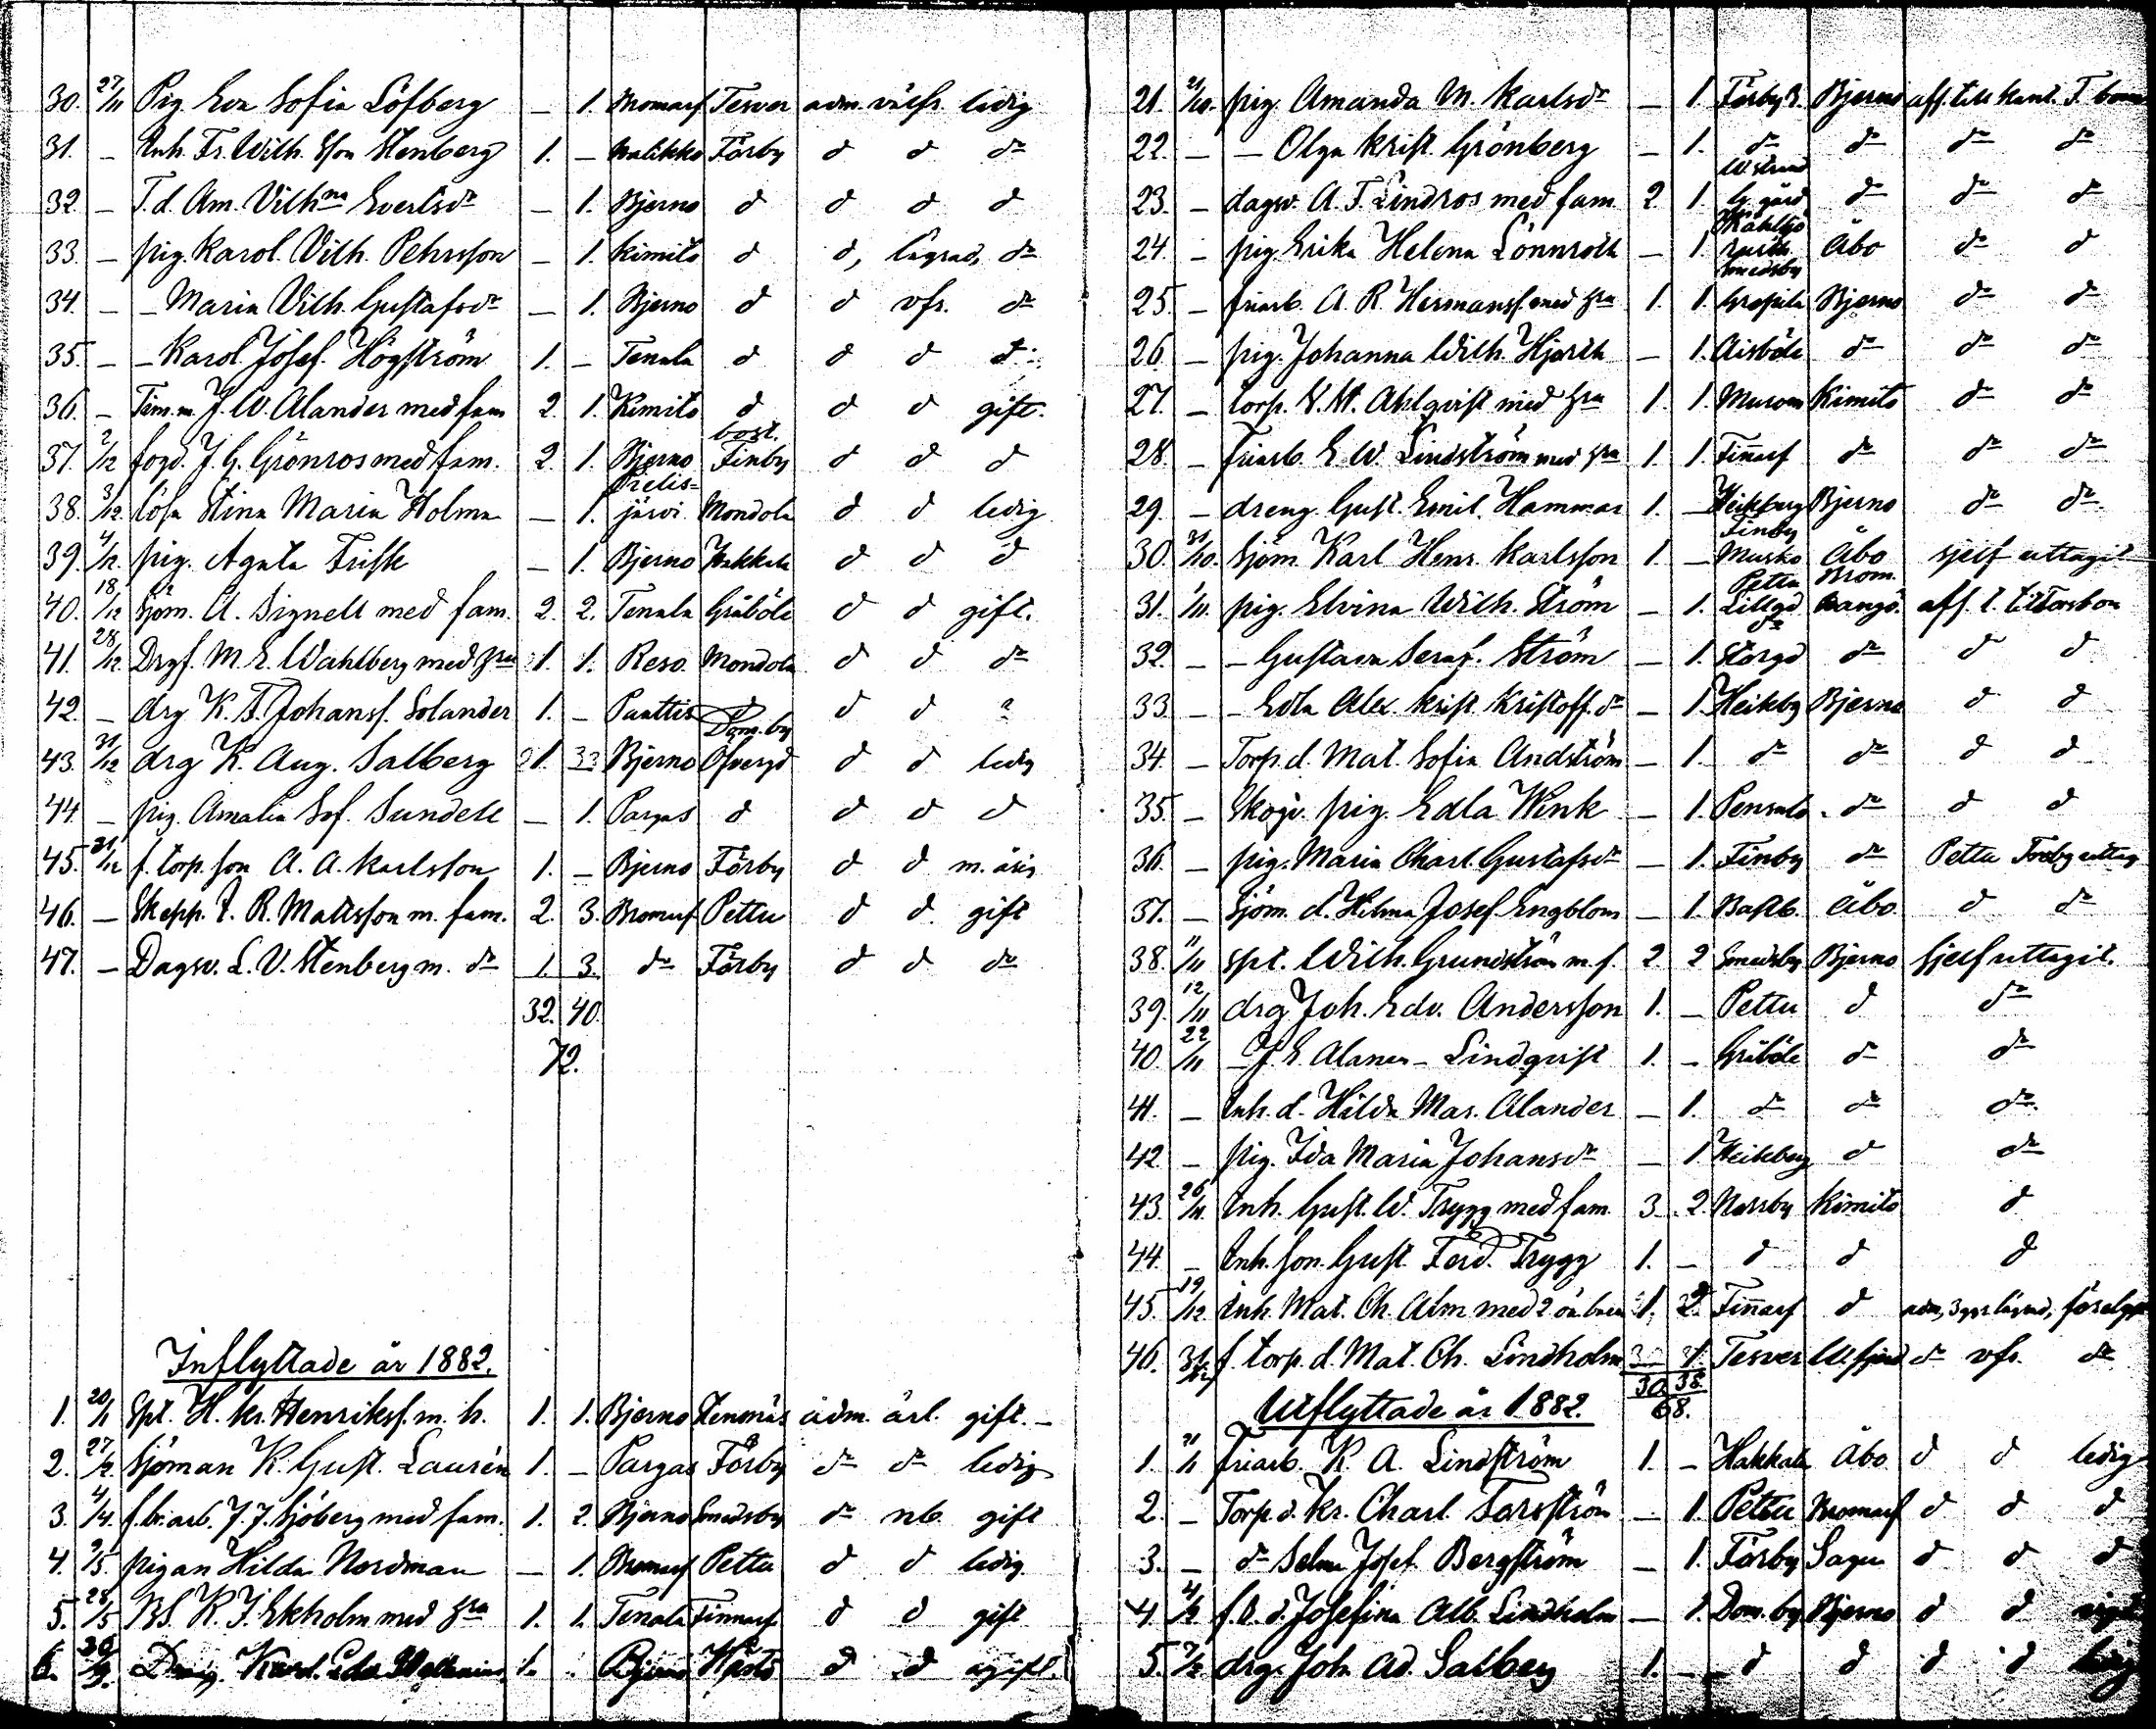 30. 27/11 Pig. Eva Sofia Löfberg – 1. Bromarf Tesver adm. välfr. ledig
31. – Inh. Fr. Wilh. Sson Stenberg 1. – Halikko Förby d d do
32. – T. d. Am. Vilhna Evertsdr – 1. Bjerno d d d d
33. – pig. Karol. Vilh. Pehrsson – 1. Kimito d d, lagrad, do
34. – – Maria Vilh. Gustafsdr – 1. Bjerno d d vfr. do
35. – – Karol. Josef. Högström 1. – Tenala d d d d
36. – Tim.m. J. W. Alander med fam 2. 1. Kimito d d d gift.
37. 2/12 fogd. J. G. Grönros med fam. 2. 1. Bjerno bost. Finby d d d
38. 3/12 lösa Stina Maria Holma – 1. järvi Mondola d d ledig
39. 4/12 pig. Agata Frisk – 1. Bjerno Hakkala d d d
40. 18/12 Sjöm. A. Signell med fam. 2. 2. Tenala Gräböle d d gift.
41. 28/12 Drgf. M. E. Wahlberg med hru 1. 1. Reso. Mondola d d do
42. – drg K. F. Johansf. Solander 1. – Panttis d d d ?
43. 31/12 drg K. Aug. Salberg 1. Bjerno Dom.by Öfvergd d d ledig
44. – pig. Amalia Sof. Sundell – 1. Pargas d d d d
45. 31/12 f. torp. son A. A. Karlsson 1. – Bjerno Förby d d m.årig
46. – Skepp. J. R. Mattsson m. fam. 2. 3. Bromarf Pettu d d. gift
47. – Dagsv. L. V. Stenberg m. do 1. 3. do Förby d d do
32. 40.
72.
Inflyttade år 1882.
1. 20/1 Spt. H. Kr. Henriksf. m. h. 1. 1. Bjerno Stennäs adm. ärl. gift. –
2. 27/2 Sjöman K. Gust. Laurén 1. – Pargas Förby do do ledig
3. 4/4. f. br. arb. J. J. Sjöberg med fam. 1. 2. Bjerno Smedsby do nb. gift
4. 9/5. pigan Hilda Nordman – 1. Bromarf Pettu d d ledig
5. 28/5 BS. K. J. Ekholm med hru 1. 1. Tenala Finnarf d d gift
6. Dreng. Karl 1. Bjerno d d ogift.
21. 21/10. pig. Amanda M. Karlsdr – 1. Förby B. Bjerno aff. till kant. T. bom
22. – – Olga Krist. Grönberg – 1. do do do do
23. – dagsv. A. F. Lindros med fam. 2 1. W. strand G. gård do do do
24. – pig. Erika Helena Lönnroth – 1. Åbo do d
25. – friarb. A. R. Hermansf. med hru 1. 1. Smedsby Bjerno do do
26. – pig. Johanna Wilh. Hjorth – 1. Aisböle do do do
27. – torp. Ahlqvist med hru 1. 1. Kimito do do
28. – friarb. E. W. Lindström med hru 1. 1. Finnarf do do do
29. – dreng. Gust. Emil. Hammar 1. – Bjerno do do
30. 31/10. Sjöm. Karl Henr. Karlsson 1. – Finby Åbo sjelf uttagit
31. 1/11. pig. Elvina Wilh. Ström – 1. Pettu Lillgd Brom. aff. t.
32. – – Gustava Seraf. Ström – 1. Storgd do d d
33. – – Edla Alex. Krist. Kristoff.dr – 1. Heikby Bjerno d d
34. – Torp. d. Mat. Sofia Andström – 1. do do d d
35. – Skogv. pig. Edla Wink – 1. Pensalo do d d
36. – pig. Maria Charl. Gustafsdr – 1. Finby do Pettu Förby uttag
37. – Sjöm. d. Hilma Josef. Engblom – 1. Bastb. Åbo d do
38. 11/11 Spt. Wilh. Grundström m. f. 2 2 Smedsby Bjerno sjelf uttagit.
39. 12/11 drg Joh. Edv. Andersson 1. – Pettu d do
40. 22/11 – J. E. Lindqvist 1. – Gräböle do do
41. – Inh. d. Hilda Mar. Alander – 1. do do do.
42. – pig. Ida Maria Johansdr – 1. d do
43. 26/11. Inh. Gust. W. Trygg med fam. 3. 2. Norrby Kimito d
44. – Inh. son Gust. Ferd. Trygg 1. – d d d
45. 19/12 Inh. Mat. Ch. Alm med 2 1. 2. Finnarf d
46. 31/12 f. torp. d. Mat. Ch. Lindholm 1. Tesver do vfr. do
30 38.
68.
Utflyttade år 1882.
1. 21/1 Friarb. K. A. Lindström 1. – Hakkala Åbo d d ledig
2. – Torp. d. Kr. Charl. Forsström – 1. Pettu Bromarf d d d
3. – do Selma Josef. Bergström – 1. Förby Sagu d d d
4. 4/2 f. b. d. Josefina Alb. Lindholm – 1. Dom.by Bjerno d d
5. 7/2 drg. Joh. Ad. Salberg 1. – d d d d ledig